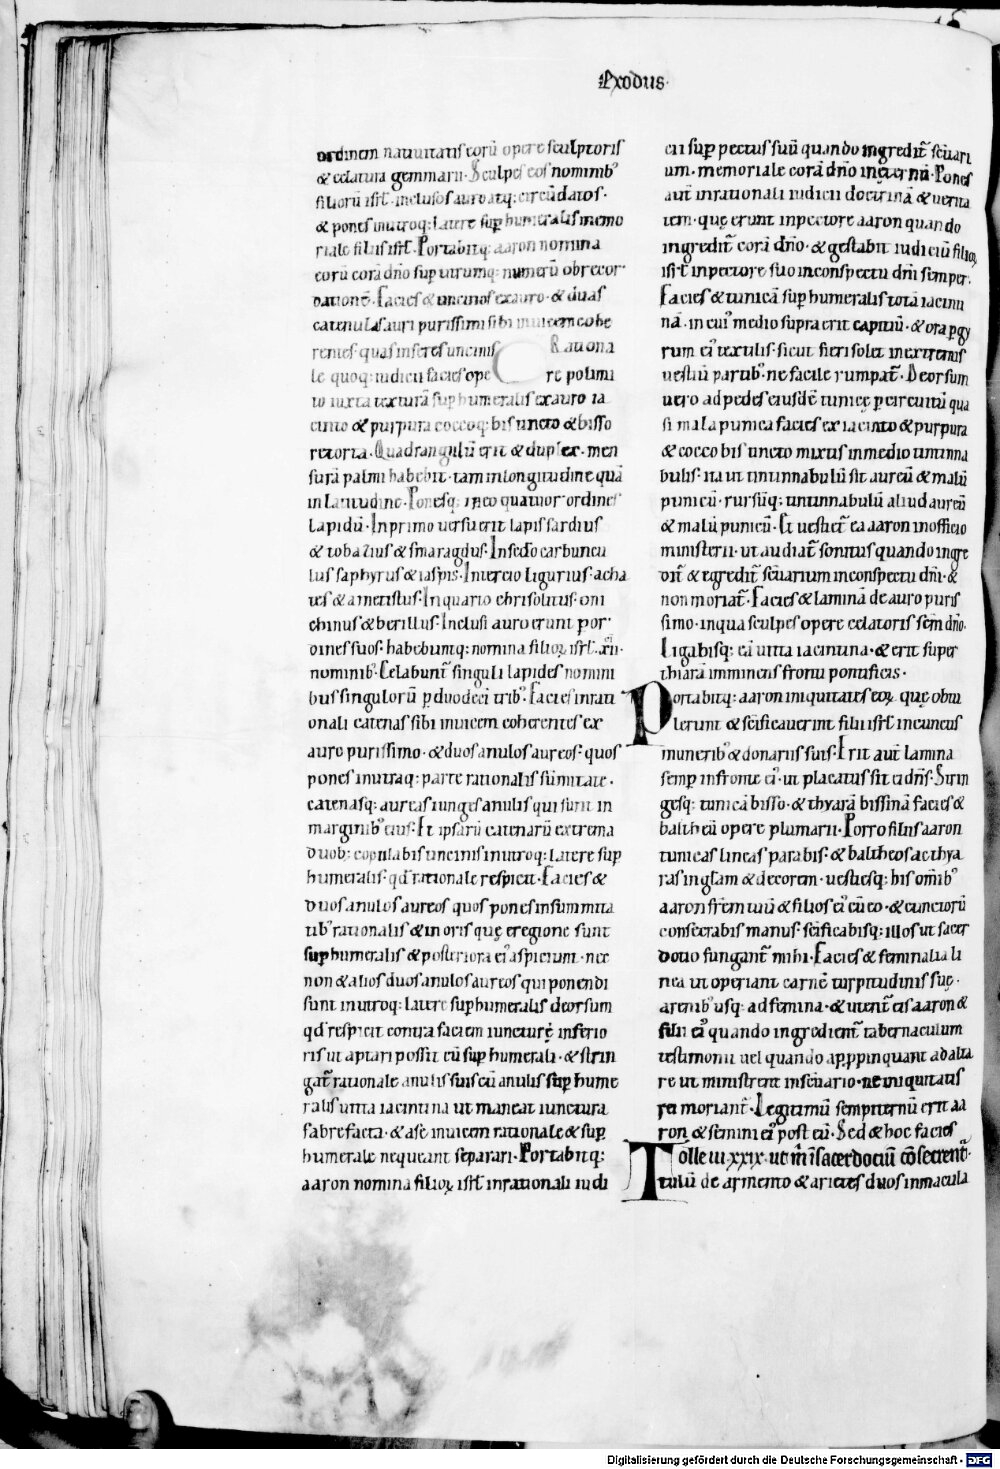 Exodus.
ordinem natiuitatis eorū opere sculptoris
& celatura gemmarii. Sculpes eos nominibꝰ
filiorū isrl̄. inclusos auro atq; circūdatos.
& pones in utroq; latere sup̄humeralis memo
riale filiis isrl̄. Portabitq; aaron nomina
eorū corā dn̄o sup̄ utrumq; numerū ob recor
dationē. Facies & uncinos ex auro. & duas
catenulas auri purissimi sibi inuicem cohe
rentes. quas inseres uncinis Rationa
le quoq; iudicii facies ope re polimi
to iuxta texturā sup̄humeralis ex auro ia
cinto & purpura coccoq; bis tincto & bisso
retorta. Quadrangulū erit & duplex. men
surā palmi habebit. tam in longitudine quā
in latitudine. Ponesq; in eo quatuor ordines
lapidū. In primo uersu erit lapis sardius
& tobazius & smaragdus. In sc̄do carbuncu
lus saphyrus & iaspis. In tercio ligurius. acha
tes & ametistus. In quarto chrisolitus. oni
chinus & berillus. Inclusi auro erunt por
dines suos. habebuntq; nomina filioꝝ isrl̄. xii.
nominibꝰ. Celabunt̄ singuli lapides nomini
bus singulorū ꝑ duodeci tribꝰ. Facies in rati
onali catenas sibi inuicem coherentes ex
auro purissimo. & duos anulos aureos. quos
pones in utraq; parte rationalis sūmitate.
catenasq; aureas iunges anulis qui sunt in
marginibꝰ eius. Et ipsarū catenarū extrema
duob; copulabis uncinis in utroq; latere sup̄
humeralis. qd̄ rationale respicit. Facies &
duos anulos aureos quos pones in summita
tibꝰ rationalis & in oris quę e regione sunt
sup̄humeralis & posteriora eiꝰ aspiciunt. nec
non & alios duos anulos aureos qui ponendi
sunt in utroq; latere sup̄humeralis deorsum
qd̄ respicit contra faciem iuncturę inferio
ris ut aptari possit cū sup̄humerali. & strin
gat̄ rationale anulis suis cū anulis sup̄hume
ralis uitta iacintina ut maneat iunctura
fabrefacta. & a se inuicem rationale & sup̄
humerale nequeant separari. Portabitq;
aaron nomina filioꝝ isrl̄ in rationali iudi
cii sup̄ pectus suū quando ingredit̄ sc̄uari
um. memoriale corā dn̄o in ęternū. Pones
aut̄ in rationali iudicii doctrinā & uerita
tem. quę erunt in pectore aaron quando
ingredit̄ corā dn̄o. & gestabit iudiciū filioꝝ
isrl̄ in pectore suo in conspectu dn̄i semper.
Facies & tunicā sup̄humeralis totā iacinti
nā. in cuiꝰ medio supra erit capitiū. & ora ꝑ gy
rum eiꝰ textilis. sicut fieri solet in extremis
uestiū partibꝰ. ne facile rumpat̄. Deorsum
uero ad pedes eiusdē tunicę ꝑ circuitū qua
si mala punica facies ex iacinto & purpura
& cocco bis tincto mixtis in medio tintinna
bulis. ita ut tintinnabulū sit aureū & malū
punicū. rursūq; tintinnabulū aliud aureū
& malū punicū. Et uestiet̄ ea aaron in officio
ministerii. ut audiat̄ sonitus quando ingre
dit̄ & egredit̄ sc̄uarium in conspectu dn̄i. &
non moriat̄. Facies & laminā de auro puris
simo. in qua sculpes opere celatoris sc̄m dn̄o.
Ligabisq; eā uitta iacintina. & erit super
thiarā imminens fronti pontificis.
Portabitq; aaron iniquitates eoꝝ quę obtu
lerunt & sc̄ificauerint filii isrl̄ in cunctis
muneribꝰ & donariis suis. Erit aut̄ lamina
semp̄ in fronte eiꝰ. ut placatus sit ei dn̄s. Strin
gesq; tunicā bisso. & thyarā bissinā facies &
baltheū opere plumarii. Porro filiis aaron
tunicas lineas parabis. & baltheos ac thya
ras in gl̄am & decorem. uestiesq; his om̄ibꝰ
aaron fr̄em tuū & filios eiꝰ cū eo. & cunctorū
consecrabis manus. sc̄ificabisq; illos ut sacer
dotio fungant̄ mihi. Facies & feminalia li
nea ut operiant carnē turpitudinis suę.
a renibꝰ usq; ad femina. & utent̄ eis aaron &
filii eiꝰ quando ingredient̄ tabernaculum
testimonii uel quando apꝓpinquant ad alta
re ut ministrent in sc̄uario. ne iniquitatis
rei moriant̄. Legitimū sempiternū erit aa
ron & semini eiꝰ post eū. Sed & hoc facies
Tolle ui.xxix. ut m̄ i sacerdociū cōsecrent̄.
tulū de armento & arietes duos inmacula
Digitalisierung gefördert durch die Deutsche Forschungsgemeinschaft - DFG